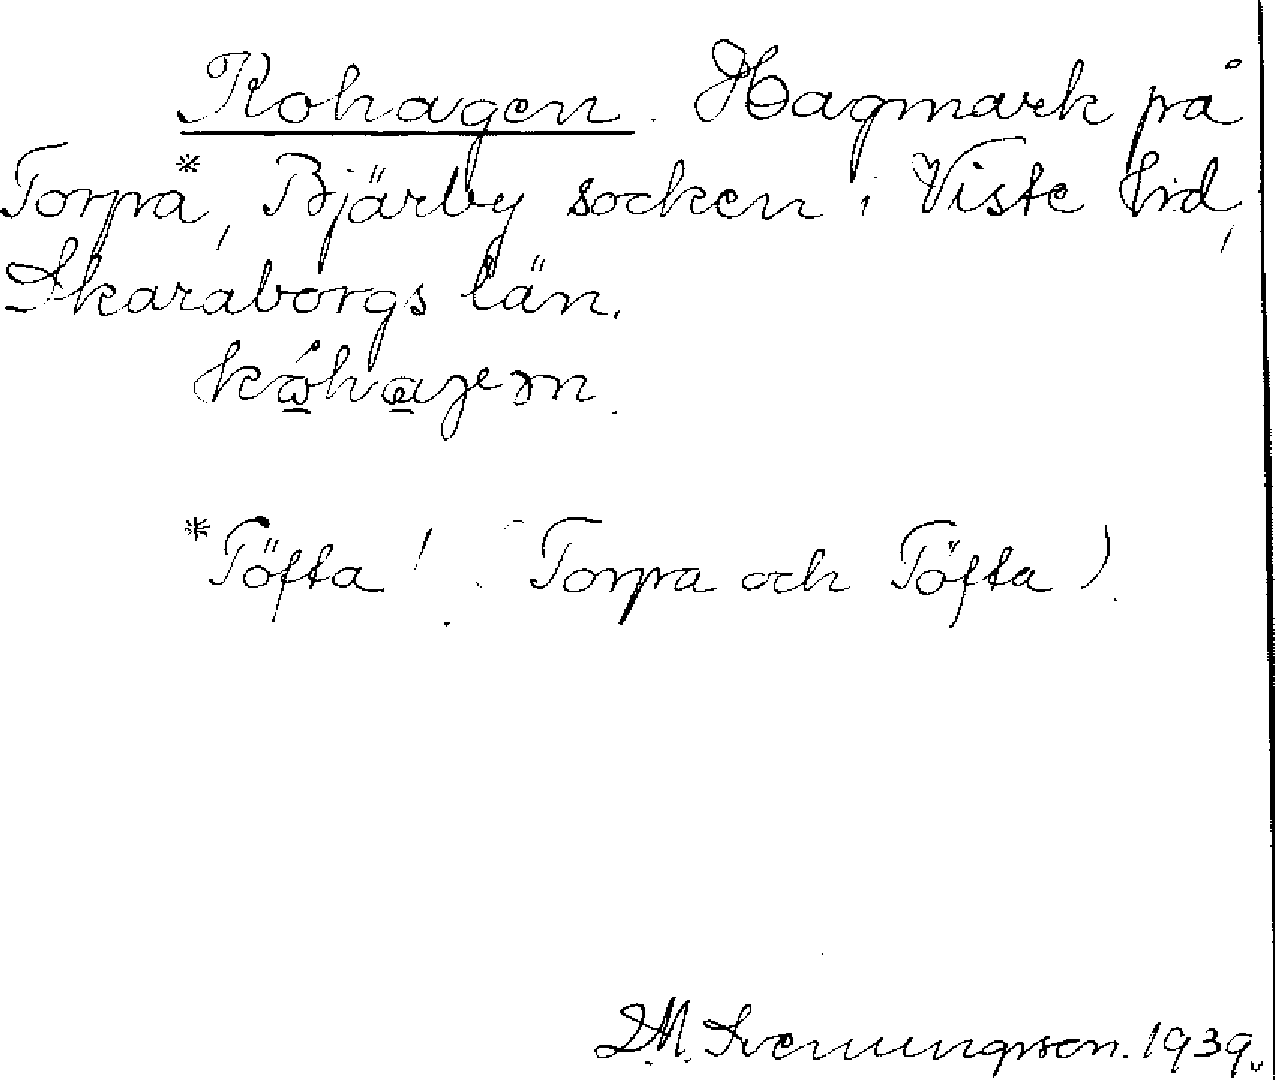 Kohagen. Hagmark på
Torpa*, Bjärby socken i Viste hrd,
Skaraborgs län.
*Töfta! (Torpa och Töfta).
D.M. Svenungsson. 1939.